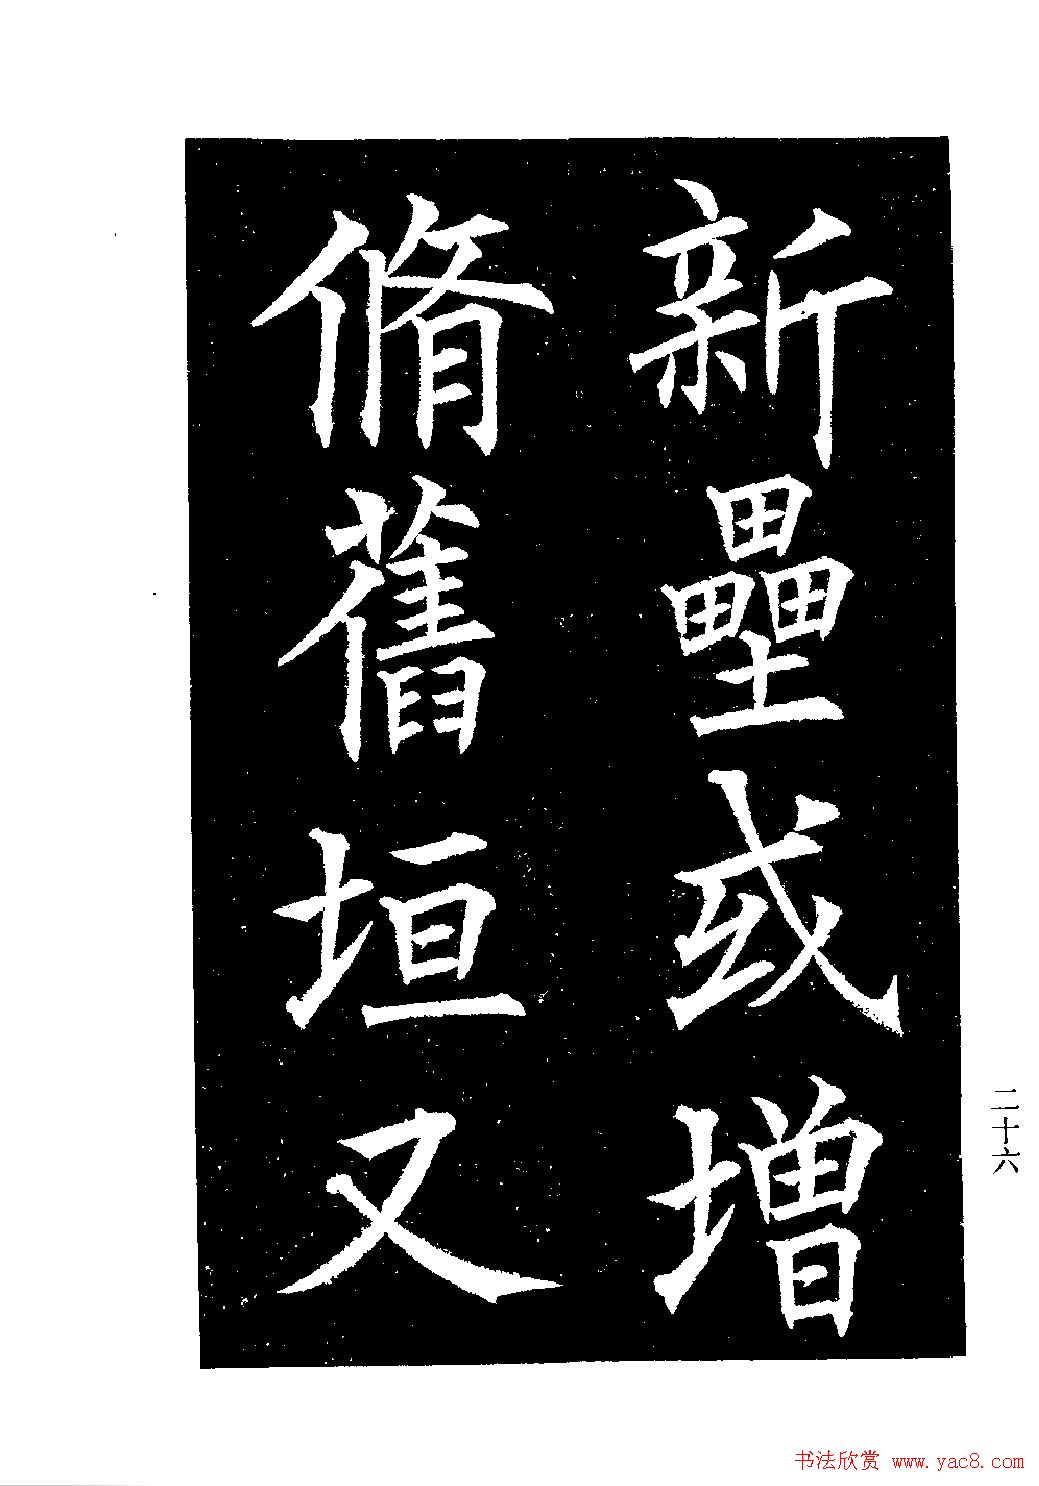 新壘或增
脩舊垣又
二十六
书法欣赏 www.yac8.com